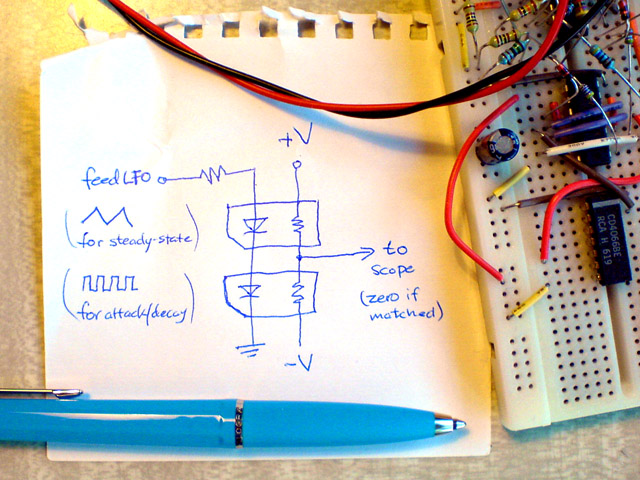 +V
feed LFO
(for steady-state)
(for attack/decay)
to
scope
(zero if
matched)
-V
CD4066BE
RCA H 619